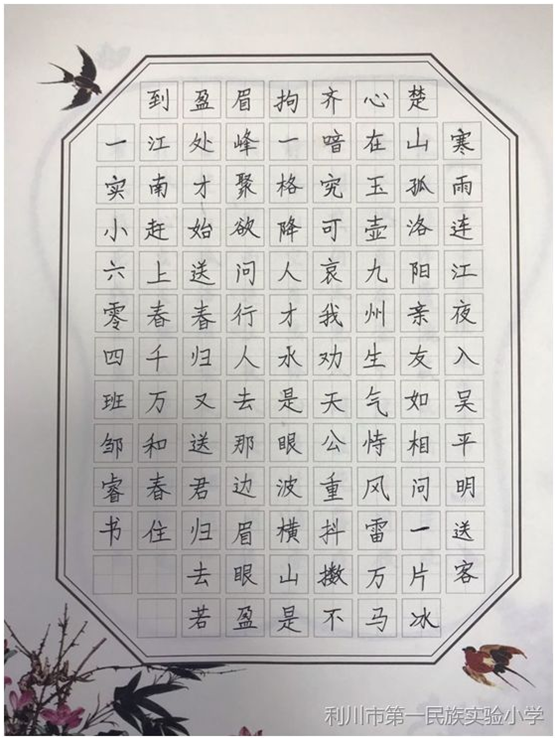 寒雨连江夜入吴平明送客
楚山孤洛阳亲友如相问一片冰
心在玉壶九州生气恃风雷万马
齐喑究可哀我劝天公重抖擞不
拘一格降人才水是眼波横山是
眉峰聚欲问行人去那边眉眼盈
盈处才始送春归又送君归去若
到江南赶上春千万和春住
一实小六零四班邹睿书
利川市第一民族实验小学